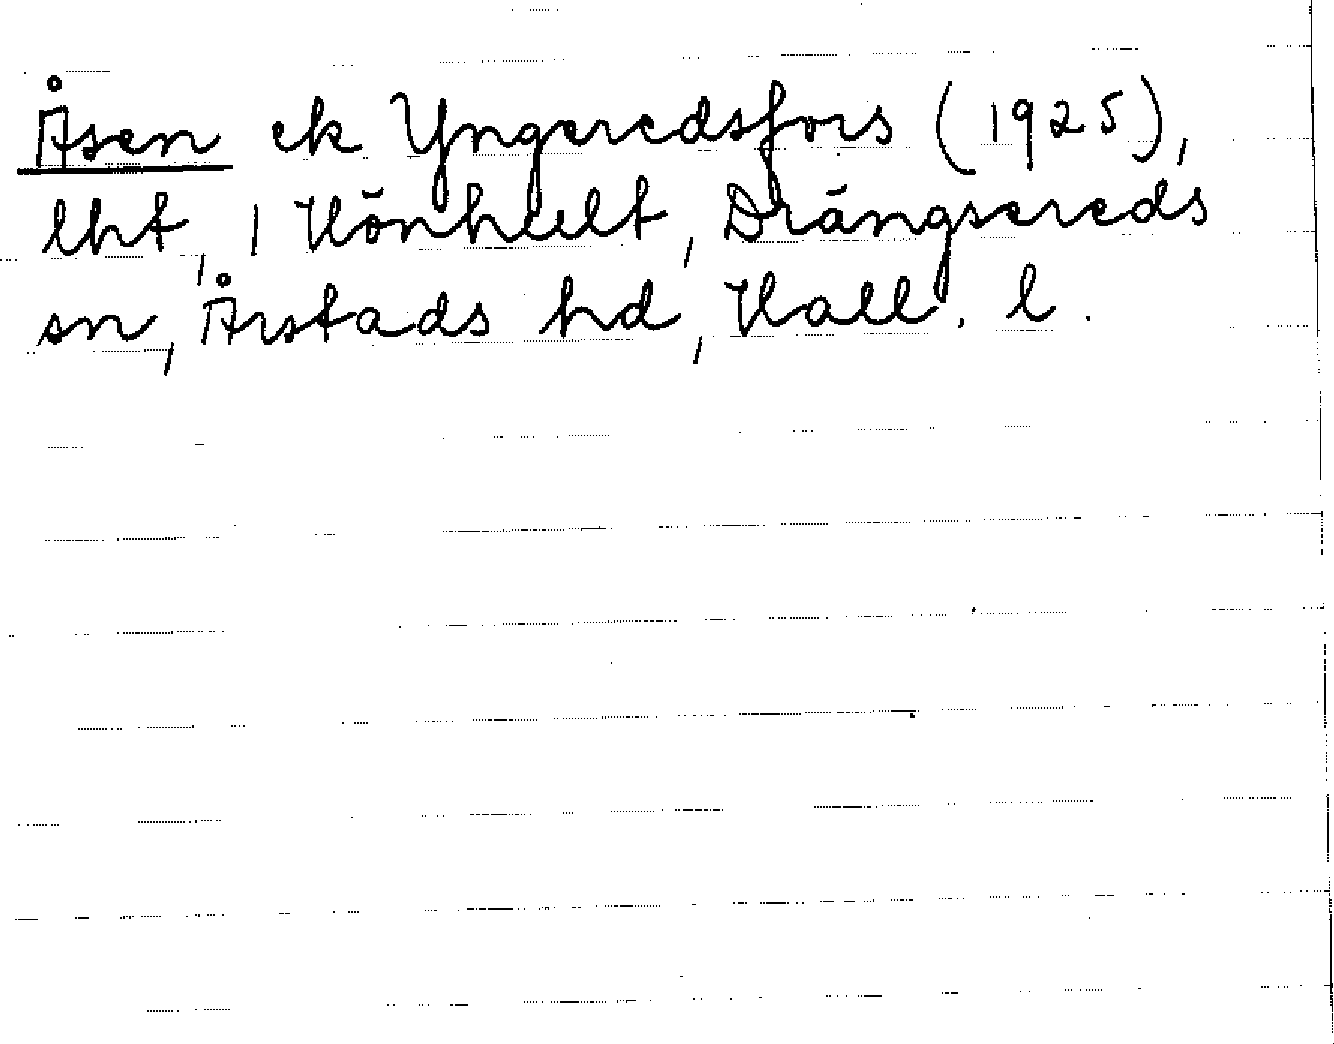 Åsen ek Yngeredsfors (1925),
lht, 1 Hönhult, Drängsereds
sn, Årstads hd, Hall. l.